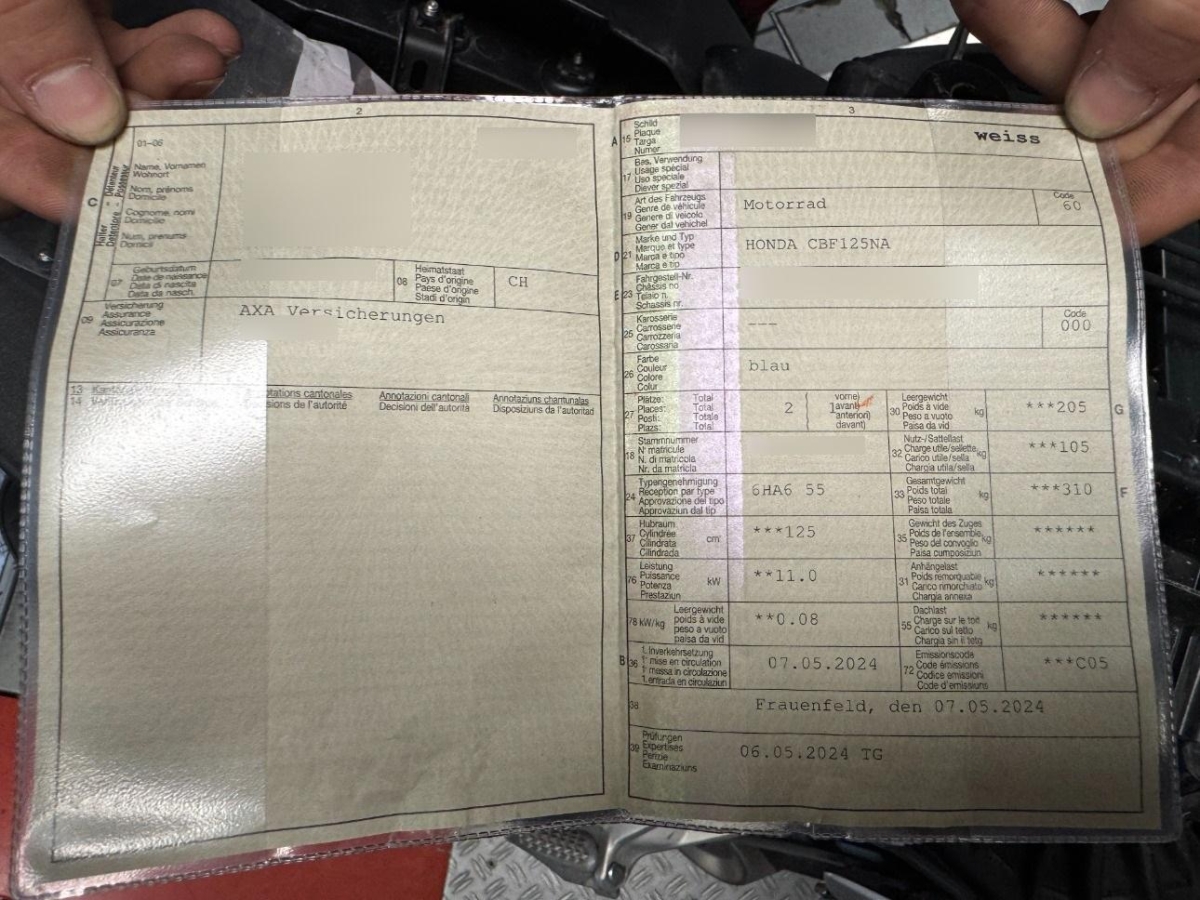 2
01–06
C
Halter
Détenteur
Detentore
Possessur
Name, Vornamen
Wohnort
Nom, prénoms
Domicile
Cognome, nomi
Domicilio
Num, prenums
Domicil
07
Geburtsdatum
Date de naissance
Data di nascita
Data da nasch.
08
Heimatstaat
Pays d'origine
Paese d'origine
Stadi d'origin
CH
09
Versicherung
Assurance
Assicurazione
Assicuranza
AXA Versicherungen
13
14
tations cantonales
sions de l'autorité
Annotazioni cantonali
Decisioni dell'autorità
Annotaziuns chantunalas
Disposiziuns da l'autoritad
3
A 15
Schild
Plaque
Targa
Numer
weiss
17
Bes. Verwendung
Usage spécial
Uso speciale
Diever spezial
19
Art des Fahrzeugs
Genre de véhicule
Genere di veicolo
Gener dal vehichel
Motorrad
Code
60
D 21
Marke und Typ
Marque et type
Marca e tipo
Marca e tip
HONDA CBF125NA
E 23
Fahrgestell-Nr.
Châssis no
Telaio n.
Schassis nr.
25
Karosserie
Carrosserie
Carrozzeria
Carossaria
---
Code
000
26
Farbe
Couleur
Colore
Colur
blau
27
Plätze: Total
Places: Total
Posti: Totale
Plazs: Total
2
vorne)
avant)
anteriori)
davant)
30
Leergewicht
Poids à vide
Peso a vuoto
Paisa da vid
kg
***205
G
18
Stammnummer
N° matricule
N. di matricola
Nr. da matricla
32
Nutz-/Sattellast
Charge utile/sellette
Carico utile/sella
Chargia utila/sella
kg
***105
24
Typengenehmigung
Réception par type
Approvazione del tipo
Approvaziun dal tip
6HA6 55
33
Gesamtgewicht
Poids total
Peso totale
Paisa totala
kg
***310
F
37
Hubraum
Cylindrée
Cilindrata
Cilindrada
cm³
***125
35
Gewicht des Zuges
Poids de l'ensemble
Peso del convoglio
Paisa cumposiziun
kg
******
76
Leistung
Puissance
Potenza
Prestaziun
kW
**11.0
31
Anhängelast
Poids remorquable
Carico rimorchiato
Chargia annexa
kg
******
78 kW/kg
Leergewicht
poids à vide
peso a vuoto
paisa da vid
**0.08
55
Dachlast
Charge sur le toit
Carico sul tetto
Chargia sin il tetg
kg
******
B 36
1. Inverkehrsetzung
1re mise en circulation
1a messa in circolazione
1. entrada en circulaziun
07.05.2024
72
Emissionscode
Code émissions
Codice emissioni
Code d'emissiuns
***C05
38
Frauenfeld, den 07.05.2024
39
Prüfungen
Expertises
Perizie
Examinaziuns
06.05.2024 TG